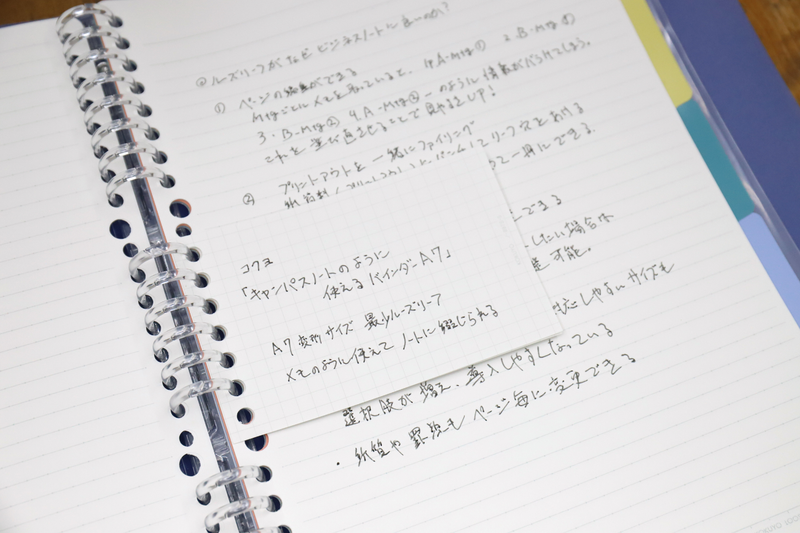 ルーズリーフがなぜビジネスノートに良いのか?
① ページの編集ができる
Mtgごとにメモを取っていると、 1.A-Mtg① 2.B-Mtg①
3.B-Mtg② 4.A-Mtg② …のように情報がバラけてしまう。
これを並び直させることで見やすさUP!
② プリントアウトを一緒にファイリング
リーフ穴をあける
て一冊にできる。
できる
したい場合は
可能。
応しやすいサイズも
選択肢が増え、導入しやすくなっている
・紙質や罫線もページ毎に変更できる
コクヨ
「キャンパスノートのように
使えるバインダーA7」
A7変形サイズ 最少ルーズリーフ
メモのように使えてノートに綴じられる